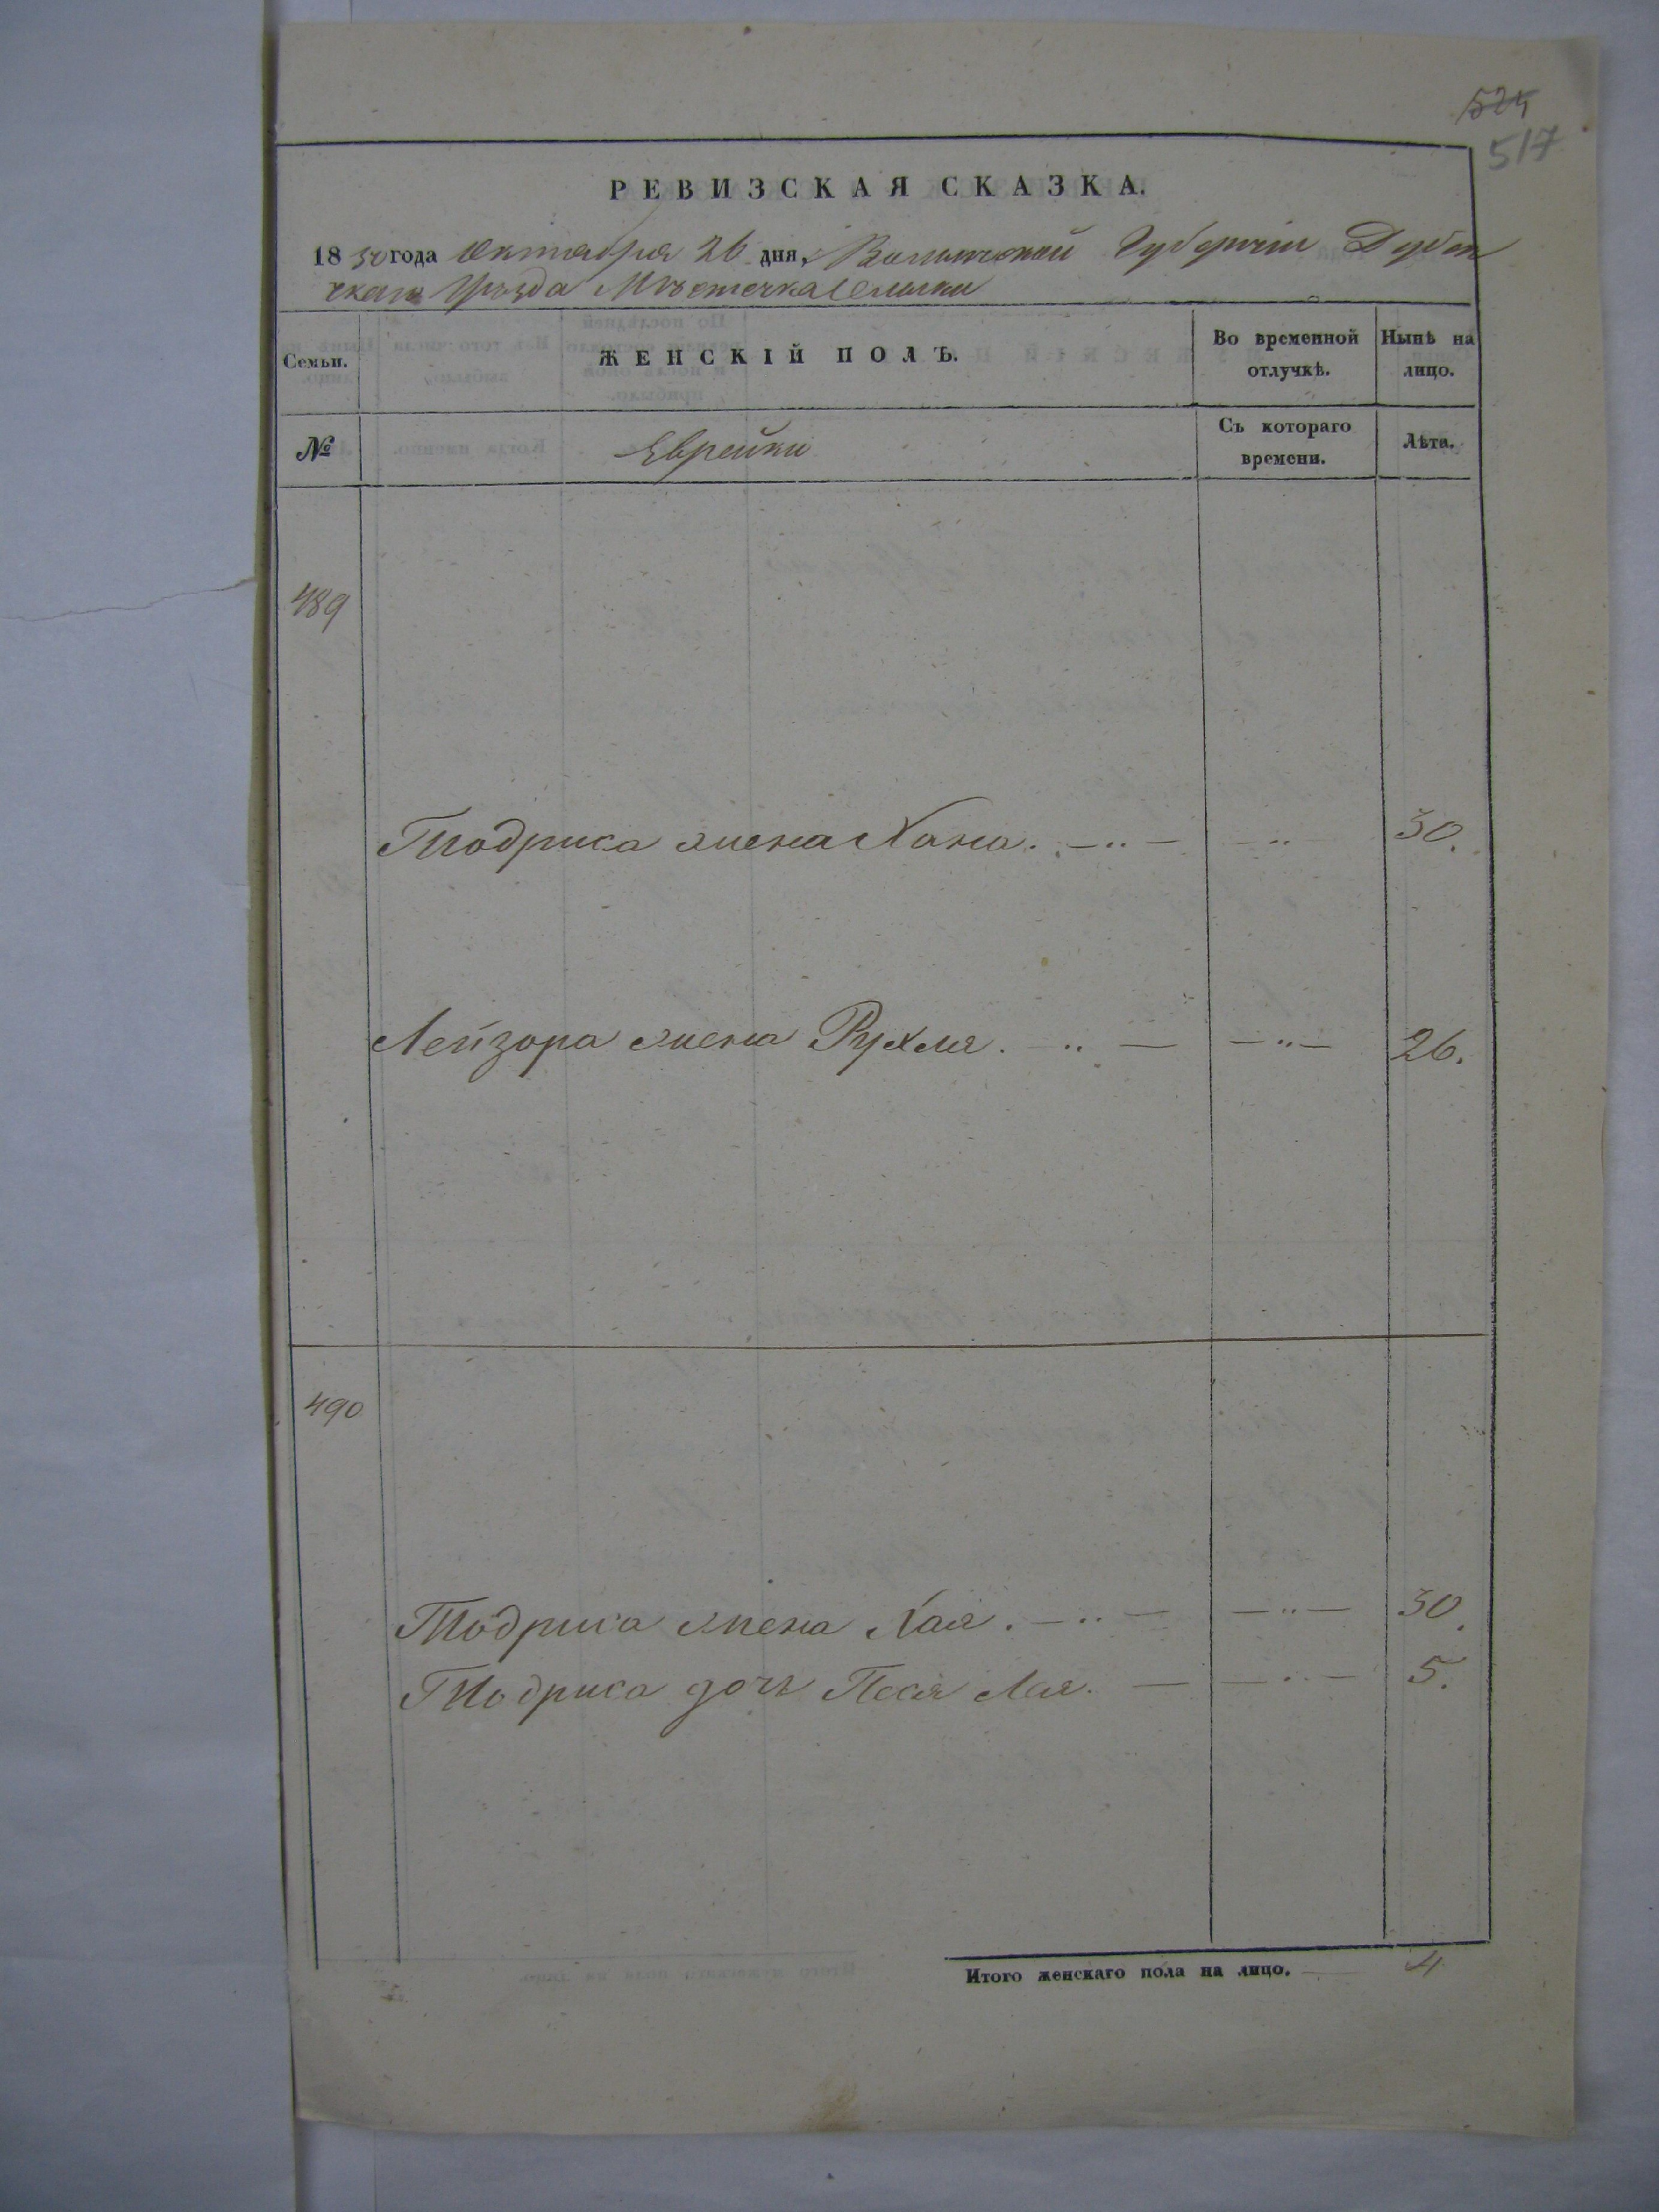 524
517
РЕВИЗСКАЯ СКАЗКА.
1850 года Октября 26 дня, Волынской Губернiи Дубен
скаго Уѣзда Мѣстечка Олыки
Семьи.
ЖЕНСКІЙ ПОЛЪ.
Во временной отлучкѣ.
Нынѣ на лицо.
№
Еврейки
Съ котораго времени.
Лѣта.
489
Тодриса жена Хана. 30.
Лейзора жена Рухля. 26.
490
Тодриса жена Хая. 30.
Тодриса дочь Песя Лея. 5.
Итого женскаго пола на лицо. 4